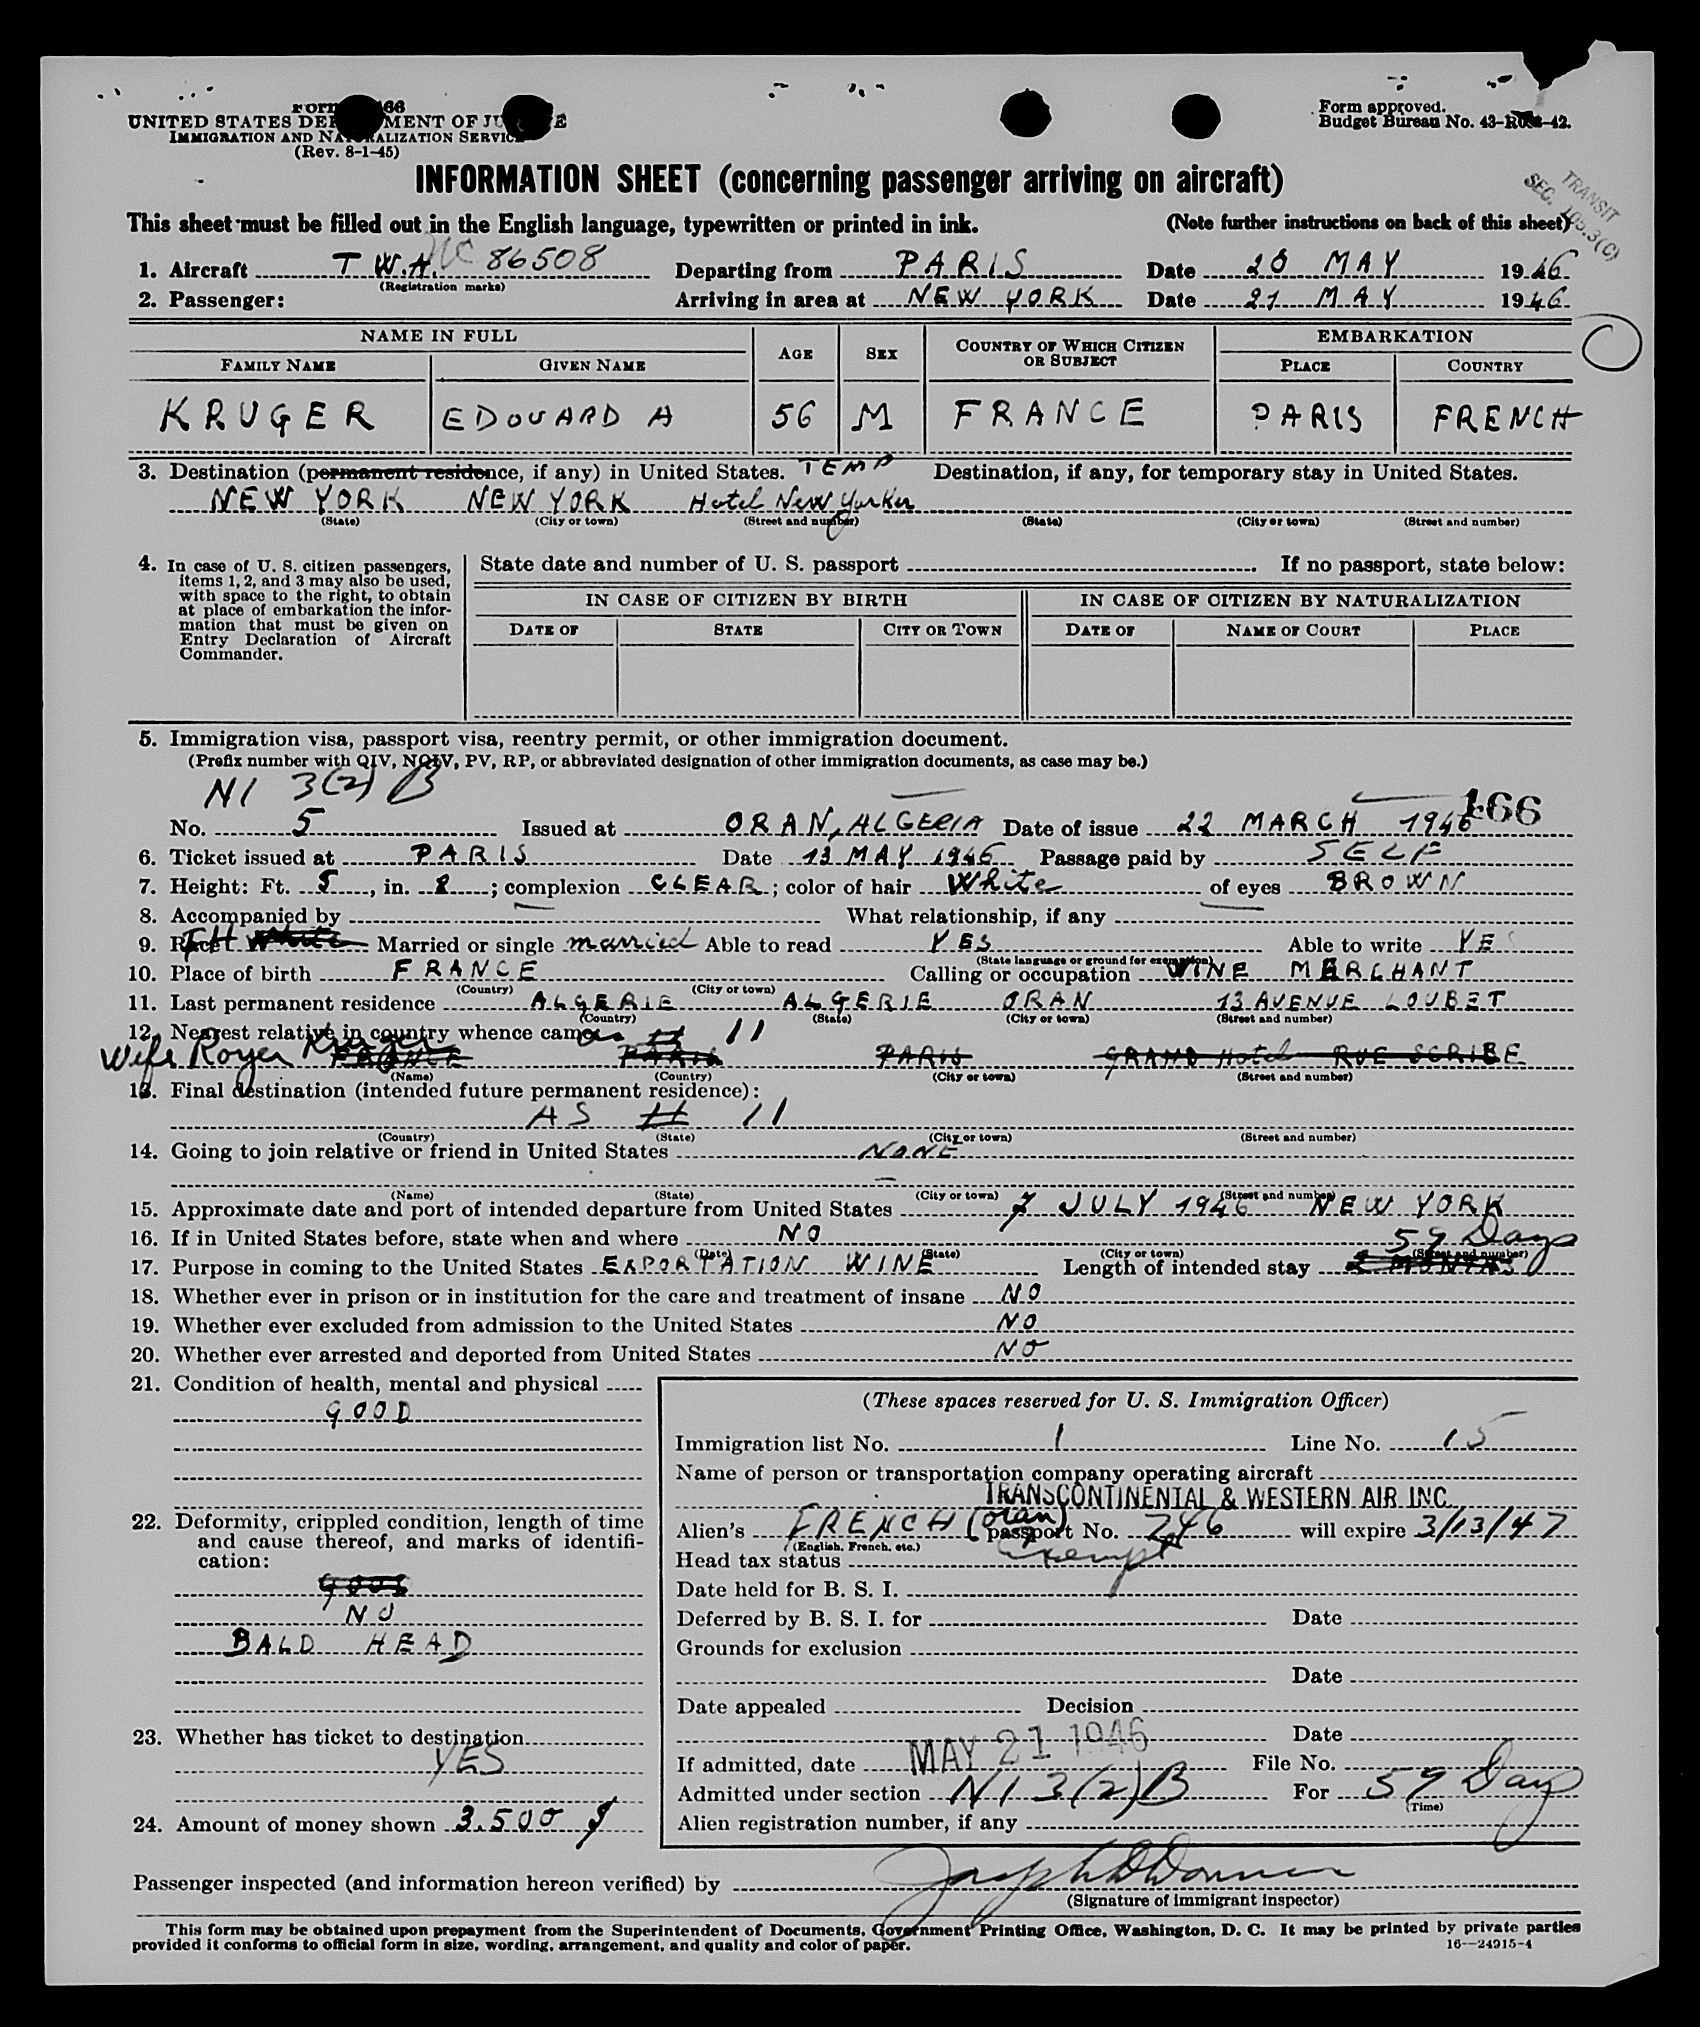 UNITED STATES DEPARTMENT OF JUSTICE
IMMIGRATION AND NATURALIZATION SERVICE
(Rev. 8-1-45)
Form approved.
Budget Bureau No. 43-
INFORMATION SHEET (concerning passenger arriving on aircraft)
TRANSIT
SEC. 105.3(C)
This sheet must be filled out in the English language, typewritten or printed in ink. (Note further instructions on back of this sheet)
1. Aircraft T.W.A. NC 86508 Departing from PARIS Date 20 MAY 1946
(Registration marks)
2. Passenger: Arriving in area at NEW YORK Date 21 MAY 1946
NAME IN FULL AGE SEX COUNTRY OF WHICH CITIZEN OR SUBJECT EMBARKATION
FAMILY NAME GIVEN NAME PLACE COUNTRY
KRUGER EDOUARD A 56 M FRANCE PARIS FRENCH
3. Destination (permanent residence, if any) in United States. TEMP Destination, if any, for temporary stay in United States.
NEW YORK NEW YORK Hotel New Yorker
(State) (City or town) (Street and number) (State) (City or town) (Street and number)
4. In case of U. S. citizen passengers,
items 1, 2, and 3 may also be used,
with space to the right, to obtain
at place of embarkation the infor-
mation that must be given on
Entry Declaration of Aircraft
Commander.
State date and number of U. S. passport If no passport, state below:
IN CASE OF CITIZEN BY BIRTH IN CASE OF CITIZEN BY NATURALIZATION
DATE OF STATE CITY OR TOWN DATE OF NAME OF COURT PLACE
5. Immigration visa, passport visa, reentry permit, or other immigration document.
(Prefix number with QIV, NQIV, PV, RP, or abbreviated designation of other immigration documents, as case may be.)
NI 3(2) B
166
No. 5 Issued at ORAN, ALGERIA Date of issue 22 MARCH 1946
6. Ticket issued at PARIS Date 13 MAY 1946 Passage paid by SELF
7. Height: Ft. 5, in. 8; complexion CLEAR; color of hair White of eyes BROWN
8. Accompanied by What relationship, if any
9. Race White Married or single married Able to read YES Able to write YES
(State language or ground for exemption)
10. Place of birth FRANCE Calling or occupation WINE MERCHANT
(Country) (City or town)
11. Last permanent residence ALGERIE ALGERIE ORAN 13 AVENUE LOUBET
(Country) (State) (City or town) (Street and number)
12. Nearest relative in country whence came as # 11
Wife Royer Kruger FRANCE PARIS PARIS GRAND Hotel RUE SCRIBE
(Name) (Country) (City or town) (Street and number)
13. Final destination (intended future permanent residence):
AS # 11
(Country) (State) (City or town) (Street and number)
14. Going to join relative or friend in United States NONE
(Name) (State) (City or town) (Street and number)
15. Approximate date and port of intended departure from United States 7 JULY 1946 NEW YORK
16. If in United States before, state when and where NO
(Date) (State) (City or town) (Street and number)
59 Days
17. Purpose in coming to the United States EXPORTATION WINE Length of intended stay MONTHS
18. Whether ever in prison or in institution for the care and treatment of insane NO
19. Whether ever excluded from admission to the United States NO
20. Whether ever arrested and deported from United States NO
21. Condition of health, mental and physical
GOOD
22. Deformity, crippled condition, length of time
and cause thereof, and marks of identifi-
cation:
GOOD
NO
BALD HEAD
23. Whether has ticket to destination
YES
24. Amount of money shown 3.500 $
(These spaces reserved for U. S. Immigration Officer)
Immigration list No. 1 Line No. 15
Name of person or transportation company operating aircraft
TRANSCONTINENTAL & WESTERN AIR INC.
Alien's FRENCH (Oran) passport No. 746 will expire 3/13/47
(English, French, etc.)
Head tax status Exempt
Date held for B. S. I.
Deferred by B. S. I. for Date
Grounds for exclusion
Date
Date appealed Decision
Date
If admitted, date MAY 21 1946 File No.
Admitted under section NI 3(2)B For 59 Days
(Time)
Alien registration number, if any
Passenger inspected (and information hereon verified) by
(Signature of immigrant inspector)
This form may be obtained upon prepayment from the Superintendent of Documents, Government Printing Office, Washington, D. C. It may be printed by private parties
provided it conforms to official form in size, wording, arrangement, and quality and color of paper. 16—24915-4